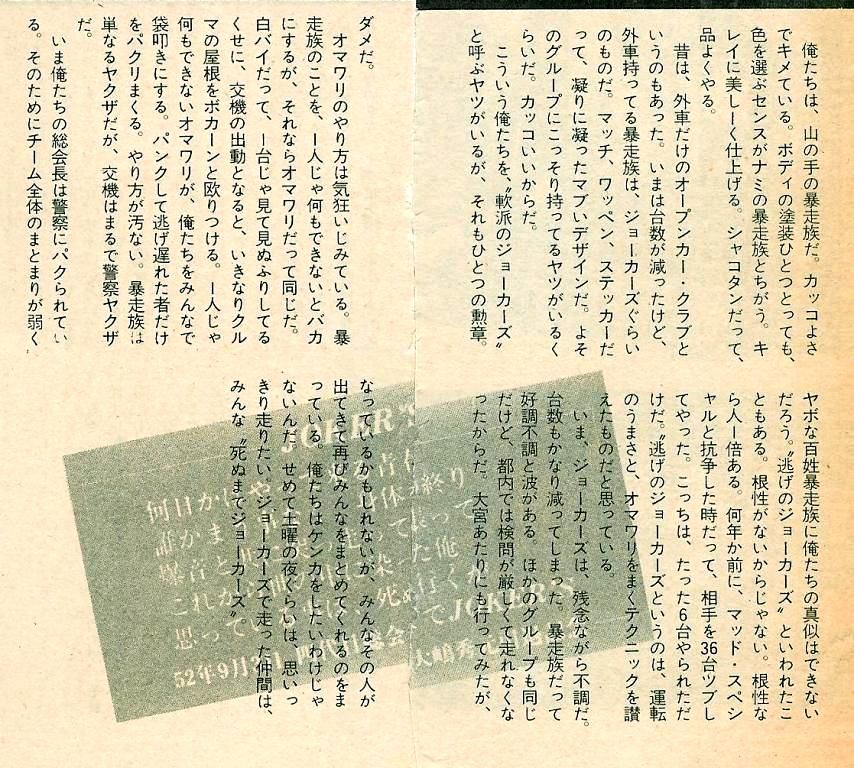 俺たちは、山の手の暴走族だ。カッコよさ
でキメている。ボディの塗装ひとつとっても、
色を選ぶセンスがナミの暴走族とちがう。キ
レイに美しーく仕上げる。シャコタンだって、
品よくやる。
昔は、外車だけのオープンカー・クラブと
いうのもあった。いまは台数が減ったけど、
外車持ってる暴走族は、ジョーカーズぐらい
のものだ。マッチ、ワッペン、ステッカーだ
って、凝りに凝ったマブいデザインだ。よそ
のグループにこっそり持ってるヤツがいるく
らいだ。カッコいいからだ。
こういう俺たちを、〝軟派のジョーカーズ〟
と呼ぶヤツがいるが、それもひとつの勲章。
ヤボな百姓暴走族に俺たちの真似はできない
だろう。〝逃げのジョーカーズ〟といわれたこ
ともある。根性がないからじゃない。根性な
ら人一倍ある。何年か前に、マッド・スペシ
ャルと抗争した時だって、相手を36台ツブし
てやった。こっちは、たった6台やられただ
けだ。〝逃げのジョーカーズというのは、運転
のうまさと、オマワリをまくテクニックを讃
えたものだと思っている。
いま、ジョーカーズは、残念ながら不調だ。
台数もかなり減ってしまった。暴走族だって
好調不調と波がある。ほかのグループも同じ
だけど、都内では検問が厳しくて走れなくな
ったからだ。大宮あたりにも行ってみたが、
ダメだ。
オマワリのやり方は気狂いじみている。暴
走族のことを、一人じゃ何もできないとバカ
にするが、それならオマワリだって同じだ。
白バイだって、一台じゃ見て見ぬふりしてる
くせに、交機の出動となると、いきなりクル
マの屋根をボカーンと殴りつける。一人じゃ
何もできないオマワリが、俺たちをみんなで
袋叩きにする。パンクして逃げ遅れた者だけ
をパクリまくる。やり方が汚ない。暴走族は
単なるヤクザだが、交機はまるで警察ヤクザ
だ。
いま俺たちの総会長は警察にパクられてい
る。そのためにチーム全体のまとまりが弱く
なっているかもしれないが、みんなその人が
出てきて再びみんなをまとめてくれるのをま
っている。俺たちはケンカをしたいわけじゃ
ないんだ。せめて土曜の夜ぐらいは、思いっ
きり走りたい。ジョーカーズで走った仲間は、
みんな〝死ぬまでジョーカーズ〟
JOKER'S
何日か
終り
誰か
爆音
これ
思っ
JOKER'S
52年9月